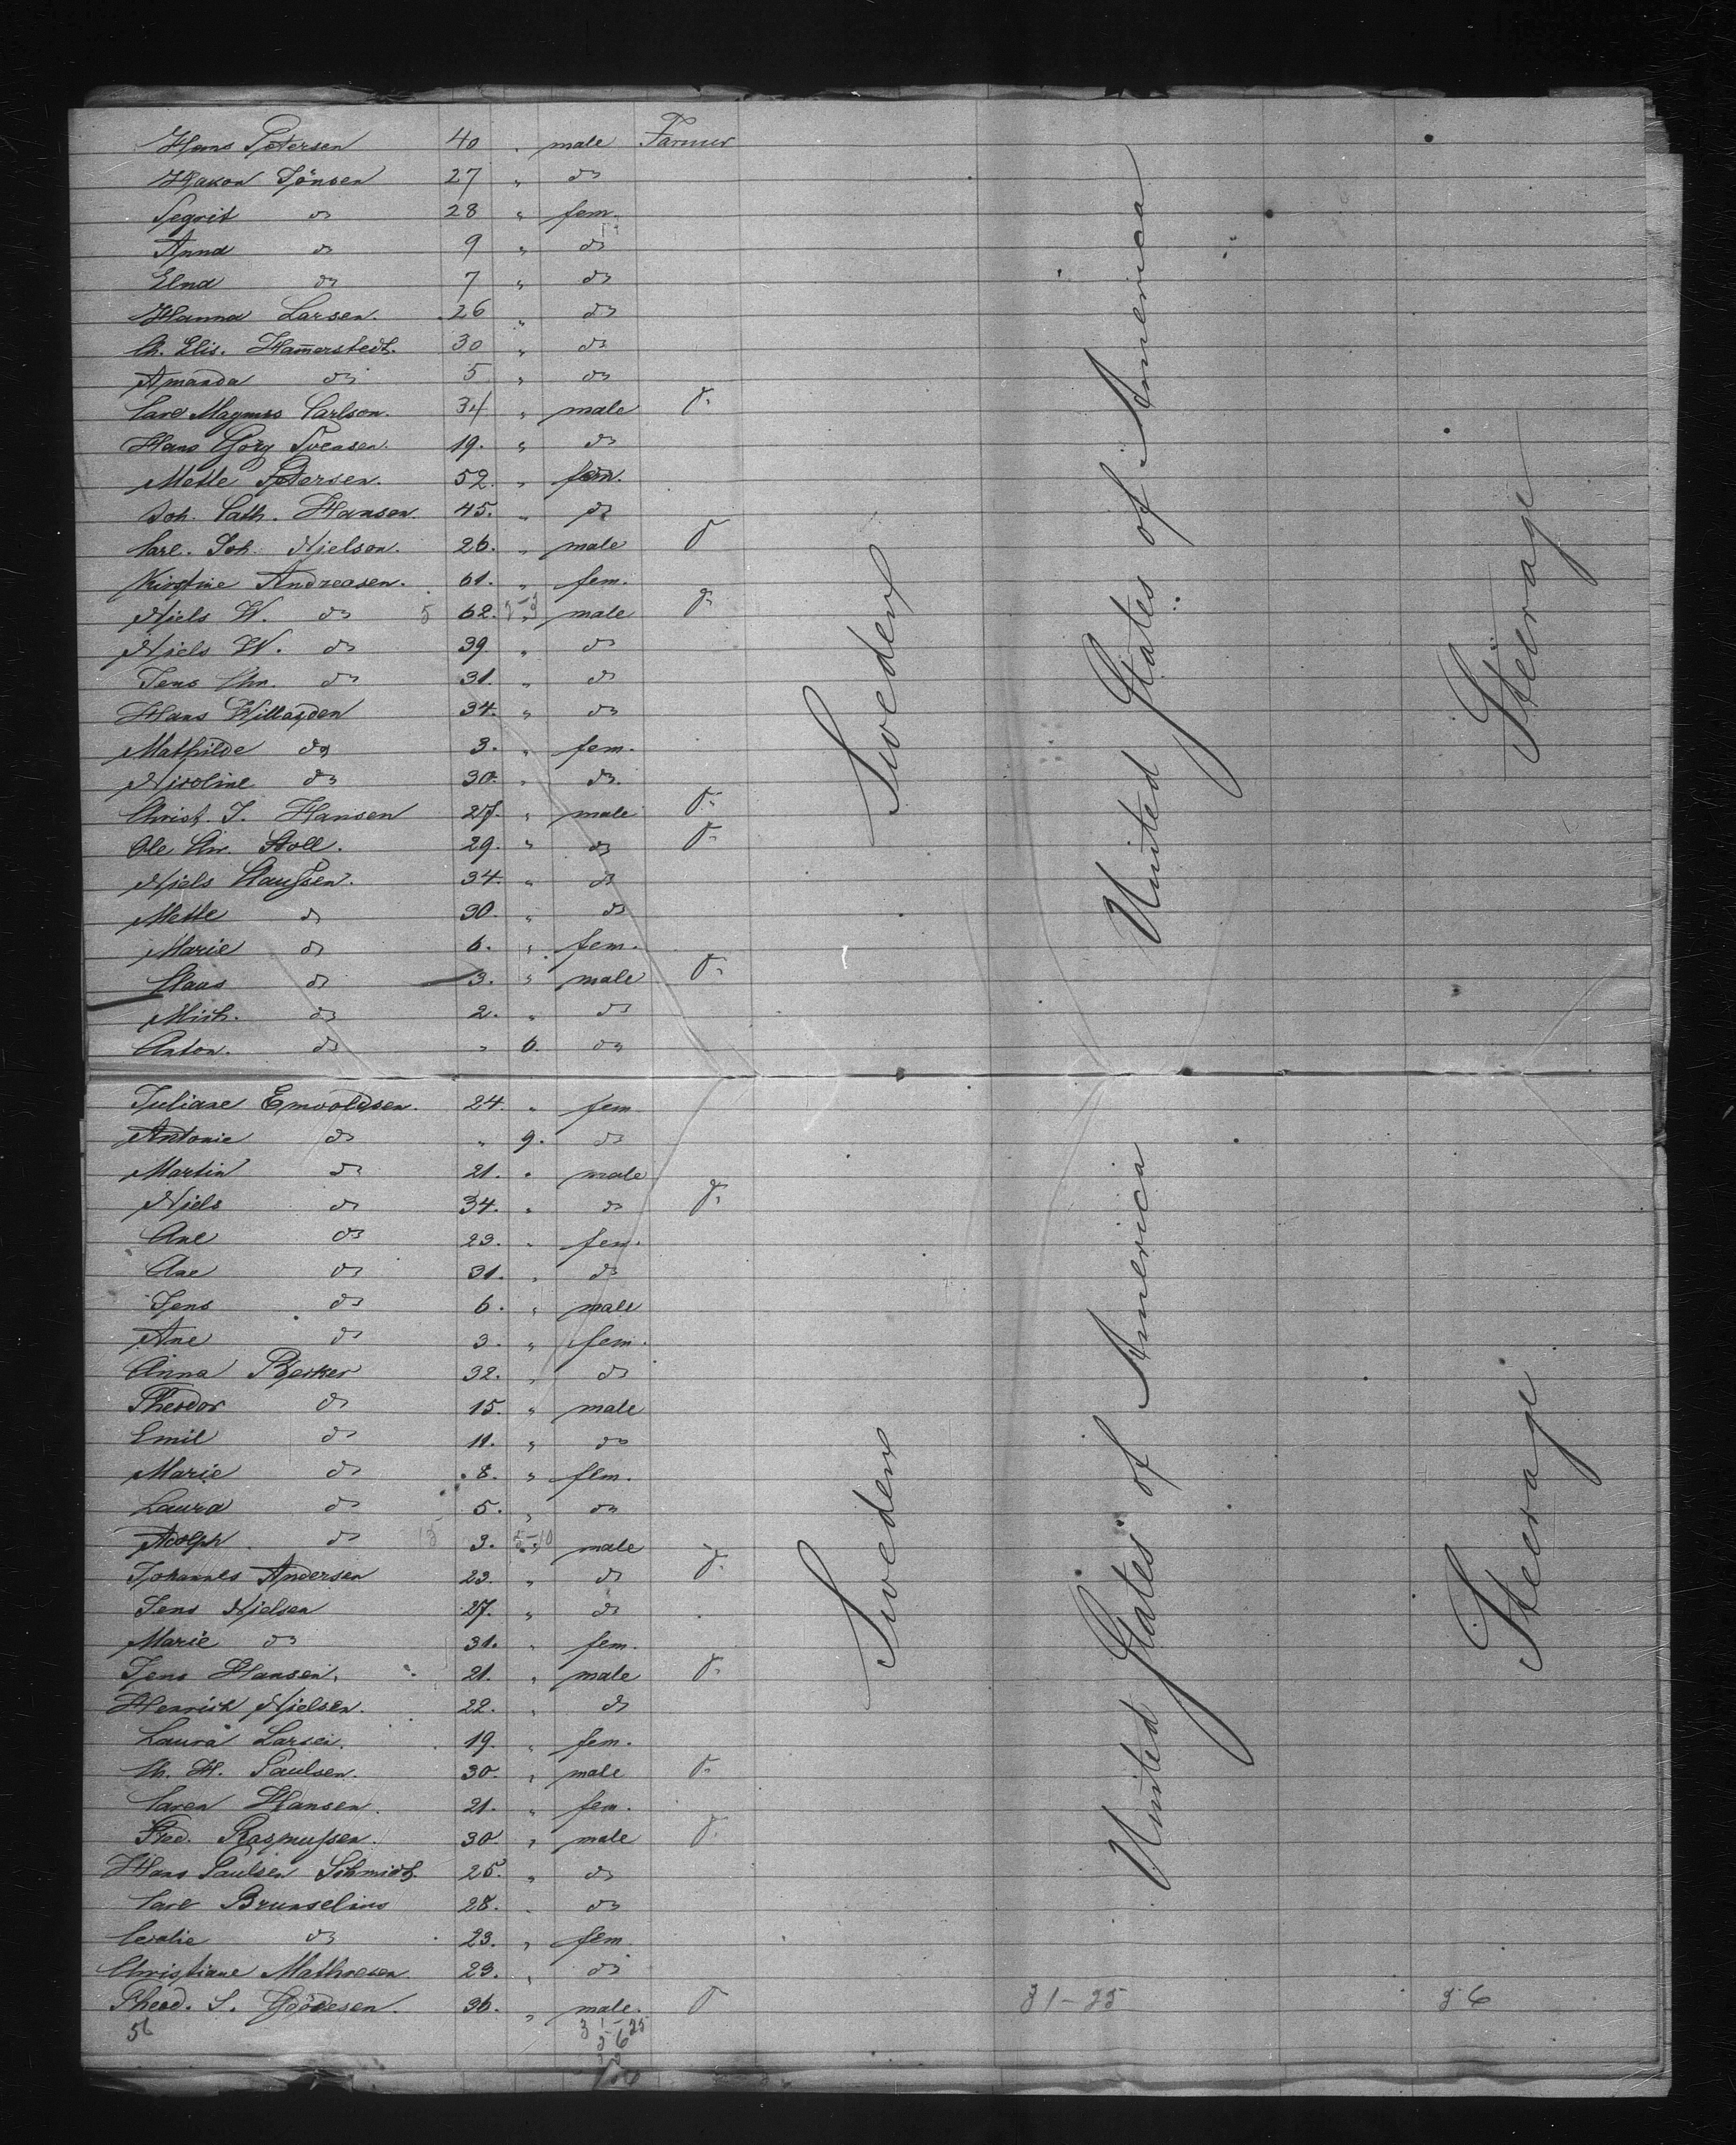 Hans Petersen 40 " male Farmer
Hakon Jönsen 27 " do
Segrit do 28 " fem.
Anna do 9 " do
Elna do 7 " do
Hanna Larsen. 26 " do
Ch. Elis. Ham̄erstedt. 30 " do
Amanda do 5 " do
Carl Magnus Carlson. 34 " male do
Hans Görg Svensen. 19. " do
Mette Petersen. 52. " fem.
Joh. Cath. Hansen. 45. " do
Carl. Joh. Nielson. 26. " male do
Kirstine Andreasen. 61. " fem.
Niels W. do 5 62. " male do
Niels W. do 39 " do
Jens Chr. do 31. " do
Hans Willadsen 34. " do
Mathilde do 3. " fem.
Nicoline do 30. " do.
Christ. J. Hansen 27. " male do
Ole Chr. Stoll. 29. " do do
Niels Claussen. 34. " do
Mette do 30. " do
Marie do 6. " fem.
Claus do 3. " male do
Mich. do 2. " do
Anton. do " 6. do
Juliane Envoldsen. 24. " fem
Antonie do " 9. do
Martin do 21. " male
Niels do 34. " do do
Ane do 23. " fem.
Ane do 31. " do
Jens do 6. " male
Ane do 3. " fem.
Anna Becker 32. " do
Theodor do 15. " male
Emil do 11. " do
Marie do 8. " fem.
Laura do 5. " do
Adolph. do 15 3. 5-10 " male
Johannes Andersen 23. " do do
Jens Nielsen 27. " do
Marie do 31. " fem.
Jens Hansen. 21. " male do
Henrick Nielsen. 22. " do
Laura Larsen. 19. " fem.
Ch. H. Paulsen. 30. " male do
Caren Hansen. 21. " fem.
Fred. Rasmussen. 30. " male do
Hans Paulsen Schmidt. 25. " do
Carl Brunselius 28. " do
Ceralie do 23. " fem.
Christiane Mathiesen. 23. " do
Theod. S. 36. " male. do
56
31-25
56
Sweden
United States of America
Steerage
Sweden
United States of America
Steerage
31-25
56